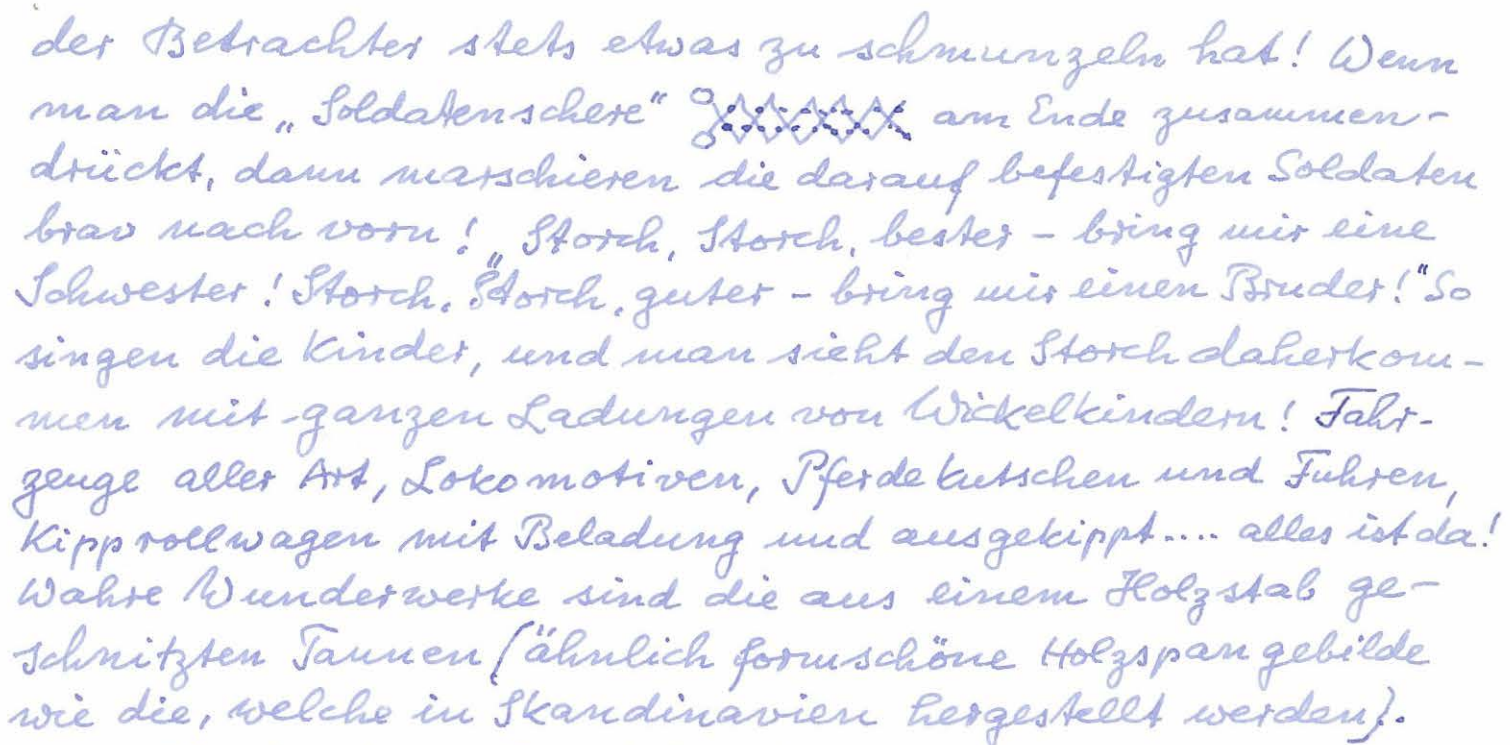 der Betrachter stets etwas zu schmunzeln hat! Wenn
man die „Soldatenschere“ am Ende zusammen-
drückt, dann marschieren die darauf befestigten Soldaten
brav nach vorn! „Storch, Storch, bester – bring mir eine
Schwester! Storch, Storch, guter – bring mir einen Bruder!“ So
singen die Kinder, und man sieht den Storch daherkom-
men mit ganzen Ladungen von Wickelkindern! Fahr-
zeuge aller Art, Lokomotiven, Pferdekutschen und Fuhren,
Kipprollwagen mit Beladung und ausgekippt.... alles ist da!
Wahre Wunderwerke sind die aus einem Holzstab ge-
schnitzten Tannen (ähnlich formschöne Holzspangebilde
wie die, welche in Skandinavien hergestellt werden).